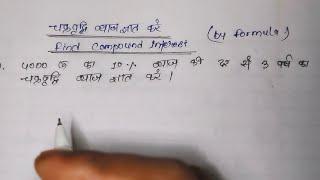 चक्रवृद्धि ब्याज ज्ञात करें
(by formula)
Find Compound Interest
4000 रु का 10% ब्याज की दर से 3 वर्ष का
चक्रवृद्धि ब्याज ज्ञात करें ।